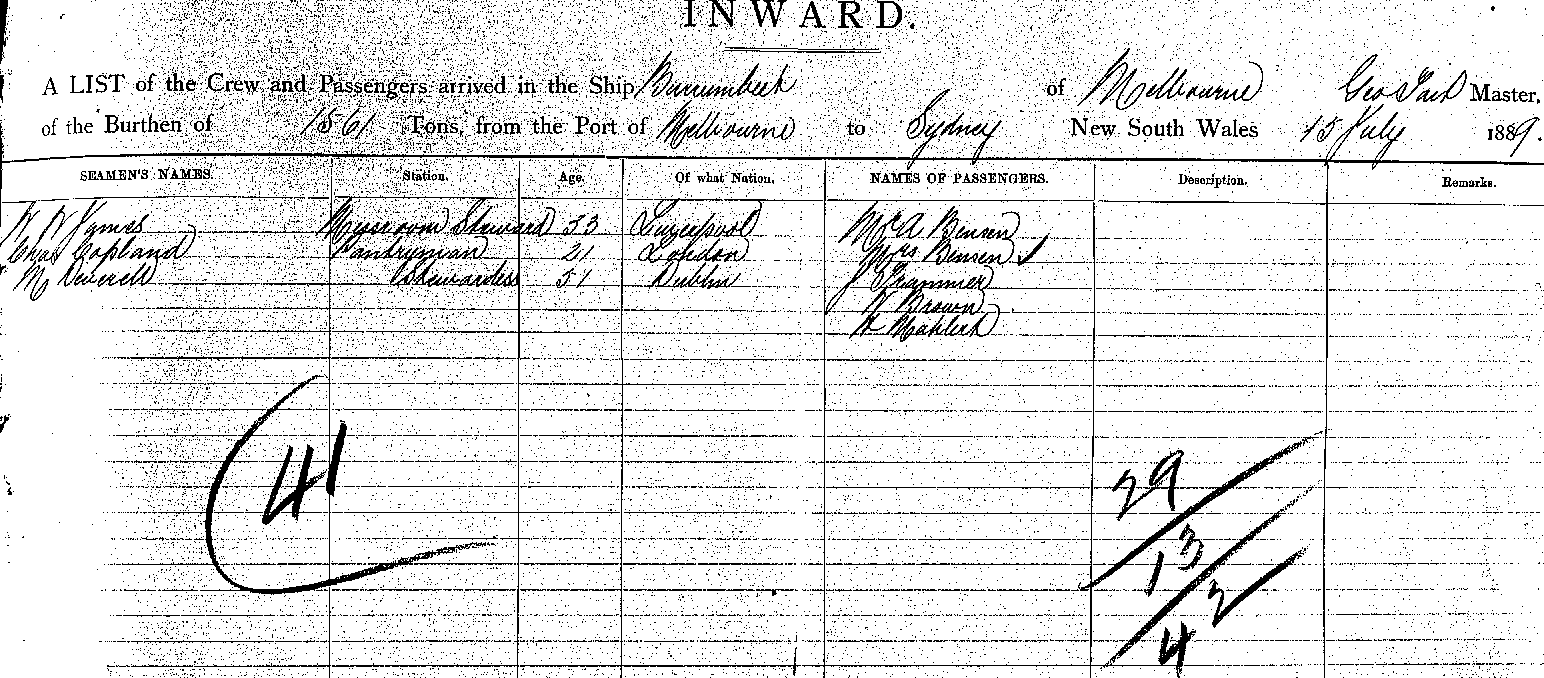 INWARD.
A LIST of the Crew and Passengers arrived in the Ship Burrumbeet of Melbourne Geo Tait Master,
of the Burthen of 1561 Tons, from the Port of Melbourne to Sydney New South Wales 15 July 1889.
SEAMEN'S NAMES. Station. Age. Of what Nation. NAMES OF PASSENGERS. Description. Remarks.
W W Messroom Steward 53 Liverpool Mr A Bensen
Chas Copland Pantryman 21 London Mrs Bensen
M Deverell Stewardess 51 Dublin J
W Brown
W
41
29
13
2
4